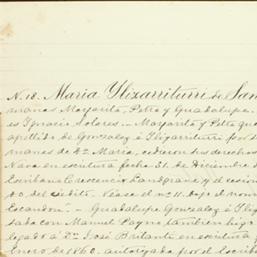 N. 18. Maria Ylizarriturri de San
manas Margarita, Petra y Guadalupe.
es Ignacio Dolores.- Margarita y Petra que
apellido de Gonzalez é Ylizarriturri por su
manas de Dª Maria, cedieron sus derechos
Nava en escritura fecha 31. de Diciembre d
Escribano Crescencio Landgrave y el cesion
do del crédito. Véase el nº 11. bajo el nom
Escandon".- Guadalupe Gonzalez é Yliz
sada con Manuel Payno, tambien hizo
legado á Dn José Britanti en escritura
Enero de 1860. autorizada por el Escrib